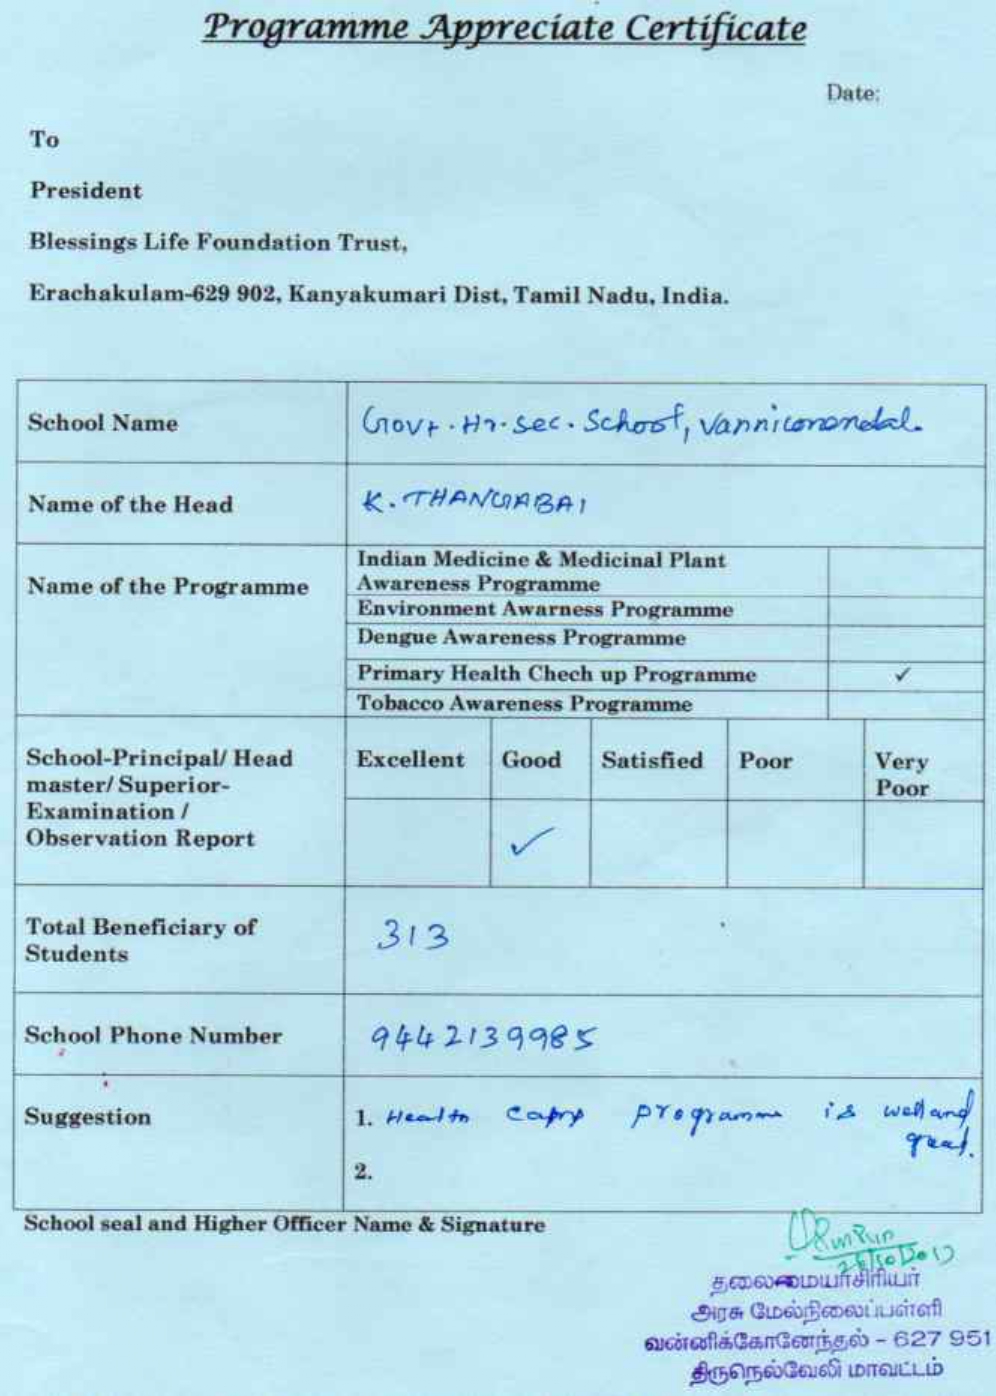 Programme Appreciate Certificate
Date:
To
President
Blessings Life Foundation Trust,
Erachakulam-629 902, Kanyakumari Dist, Tamil Nadu, India.
School Name
Govt. Hr. sec. School, Vanniconendal.
Name of the Head
K. THANGABAI
Name of the Programme
Indian Medicine & Medicinal Plant
Awareness Programme
Environment Awarness Programme
Dengue Awareness Programme
Primary Health Chech up Programme ✓
Tobacco Awareness Programme
School-Principal/ Head
master/ Superior-
Examination /
Observation Report
Excellent Good Satisfied Poor Very
Poor
✓
Total Beneficiary of
Students
313
School Phone Number
9442139985
Suggestion
1. Health camp programme is well and
great.
2.
School seal and Higher Officer Name & Signature
தலைமையாசிரியர்
அரசு மேல்நிலைப்பள்ளி
வன்னிக்கோனேந்தல் - 627 951
திருநெல்வேலி மாவட்டம்